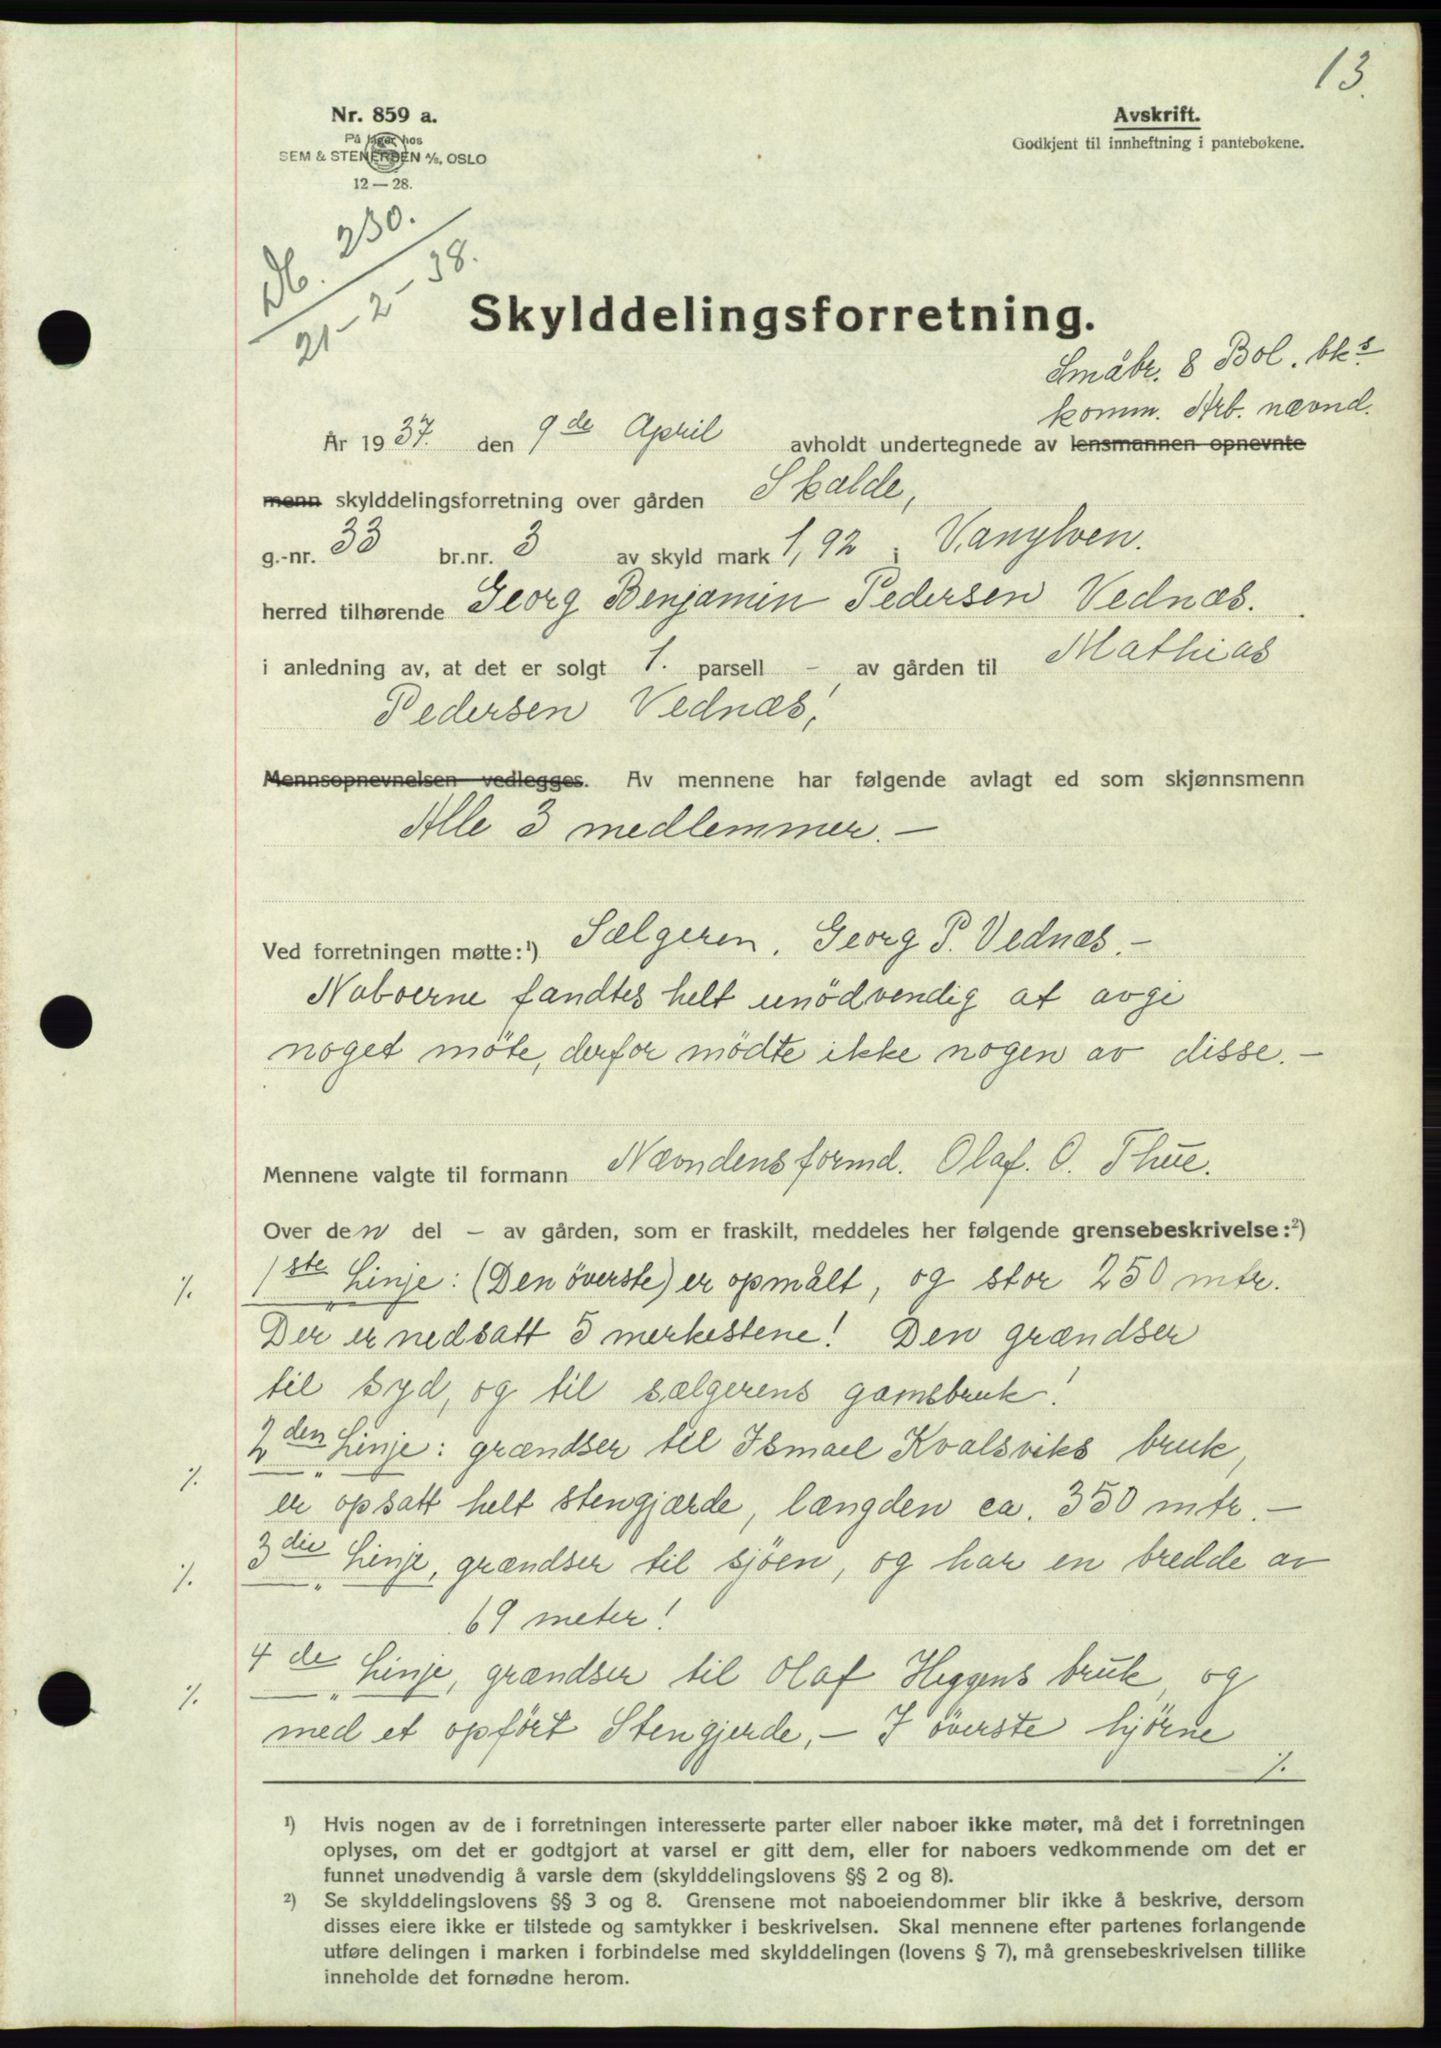 13.
Nr. 859 a.
På lager hos
SEM & STENERSEN A/S, OSLO
12 — 28.
Avskrift.
Godkjent til innheftning i pantebøkene.
Db. 230.
21-2-38.
Skylddelingsforretning.
Småbr. & Bol. bks
komm. Arb. nævnd.
År 1937. den 9de April avholdt undertegnede av lensmannen opnevnte
menn skylddelingsforretning over gården Skalde,
g.-nr. 33 br.nr. 3 av skyld mark 1,92 i Vanylven.
herred tilhørende Georg Benjamin Pedersen Vednæs.
i anledning av, at det er solgt 1. parsell - av gården til Mathias
Pedersen Vednæs!
Mennsopnevnelsen vedlegges. Av mennene har følgende avlagt ed som skjønnsmenn
Alle 3 medlemmer. —
Ved forretningen møtte:¹) Sælgeren. Georg P. Vednæs. —
Naboerne fandtes helt unödvendig at avgi
noget möte, derfor mödte ikke nogen av disse. —
Mennene valgte til formann Nævndens formd. Olaf. O. Thue.
Over den del — av gården, som er fraskilt, meddeles her følgende grensebeskrivelse:²)
⁒ 1ste Linje: (Den överste) er opmålt, og stor 250 mtr.
Der er nedsatt 5 merkestene! Den grændser
til syd, og til sælgerens gamsbruk!
⁒ 2den Linje: grændser til Ismael Kvalsviks bruk,
er opsatt helt stengjærde, længden ca. 350 mtr. —
⁒ 3die Linje, grændser til sjöen, og har en bredde av
69 meter!
⁒ 4de Linje, grændser til Olaf Heggens bruk, og
med et opfört Stengjerde, — I överste hjörne
⁒
¹) Hvis nogen av de i forretningen interesserte parter eller naboer ikke møter, må det i forretningen
oplyses, om det er godtgjort at varsel er gitt dem, eller for naboers vedkommende om det er
funnet unødvendig å varsle dem (skylddelingslovens §§ 2 og 8).
²) Se skylddelingslovens §§ 3 og 8. Grensene mot naboeiendommer blir ikke å beskrive, dersom
disses eiere ikke er tilstede og samtykker i beskrivelsen. Skal mennene efter partenes forlangende
utføre delingen i marken i forbindelse med skylddelingen (lovens § 7), må grensebeskrivelsen tillike
inneholde det fornødne herom.